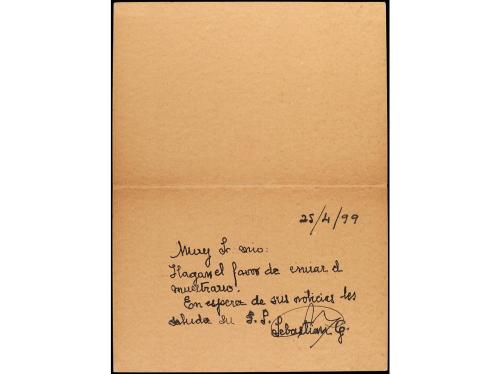 25/4/99
Muy Sr mio:
Hagan el favor de enviar el
muestrario.
En espera de sus noticias les
saluda su S.S. Sebastian G.